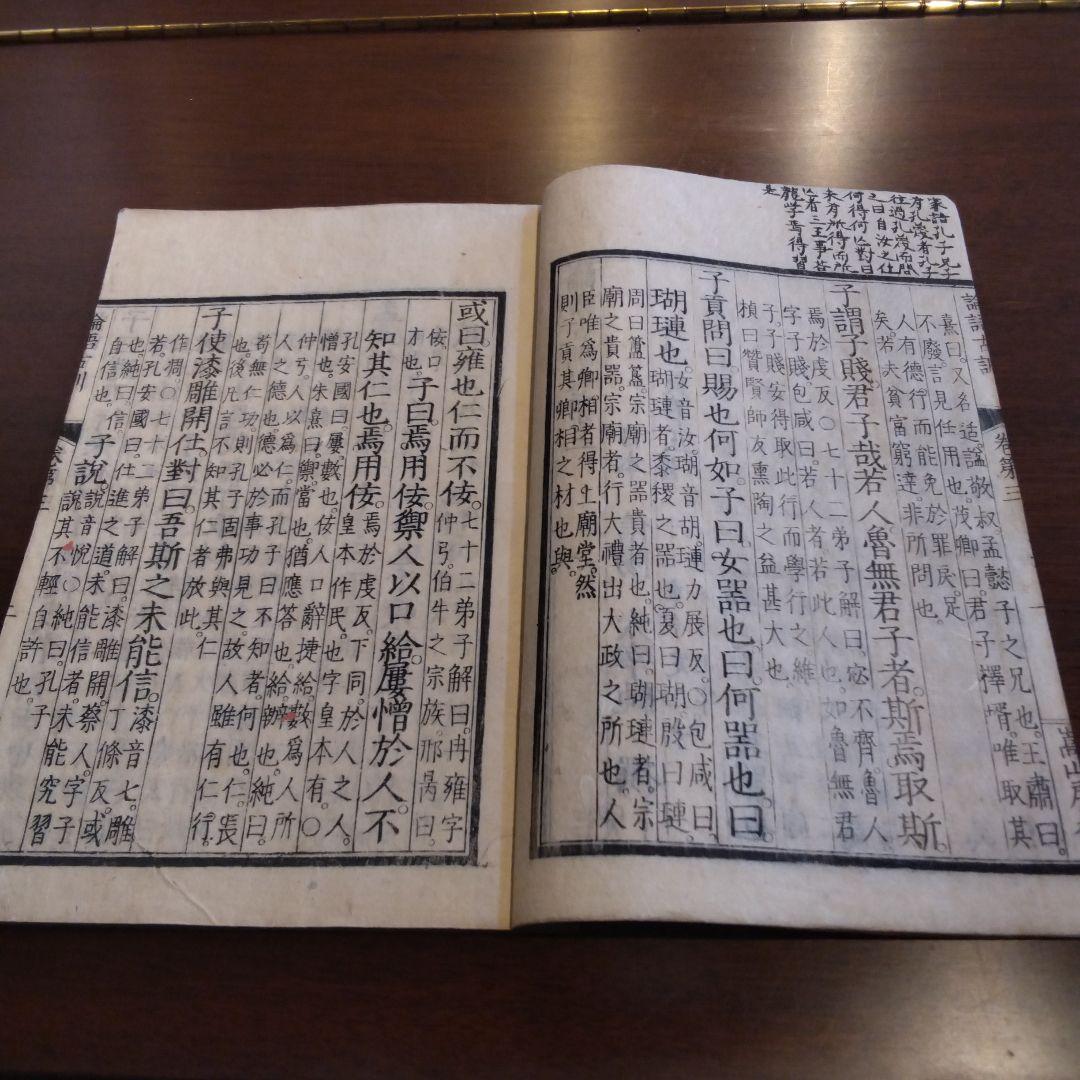 家語孔子兄子
有孔篾者孔子
往過孔篾而問
之曰自汝之仕
何得何亡對曰
未有所得而所
亡者三王事若
龍学焉得習
是
論語古訓
卷第三
熹曰又名适謚敬叔孟懿子之兄也王肅曰
不廢言見任用也茂卿曰君子擇壻唯取其
人有德行而能免於罪戾足
矣若夫貧富窮達非所問也
子謂子賤君子哉若人魯無君子者斯焉取斯
焉於虔反〇七十二弟子解曰宓不齊魯人
字子賤包咸曰若人者若此人也如魯無君
子子賤安得取此行而學行之維
楨曰贊賢師友熏陶之益甚大也
子貢問曰賜也何如子曰女器也曰何器也曰
瑚璉也女音汝瑚音胡璉力展反〇包咸曰
瑚璉者黍稷之器也夏曰瑚殷曰璉
周曰簠簋宗廟之器貴者也純曰瑚璉者宗
廟之貴器宗廟者行大禮出大政之所也人
臣唯爲卿相者得上廟堂然
則子貢其卿相之材也與
或曰雍也仁而不佞七十二弟子解曰冉雍字
仲弓伯牛之宗族邢昺曰
佞口
才也子曰焉用佞禦人以口給屢憎於人不
知其仁也焉用佞焉於虔反下同於人之人
皇本作民也字皇本有〇
孔安國曰屢數也佞人口辭捷給數爲人所
憎也朱熹曰禦當也猶應答也給辦也純曰
仲弓人以爲仁而孔子曰不知者何也仁
人之德也德必於事功見之故人雖有仁行
苟無仁功則孔子固弗與其仁
也後凡言不知其仁者放此
子使漆雕開仕對曰吾斯之未能信漆音七雕
丁條反或
作凋〇七十二弟子解曰漆雕開蔡人字子
若孔安國曰仕進之道未能信者未能究習
也純曰信
自信也子說說音悅〇純曰孔子
說其不輕自許也
論語古訓